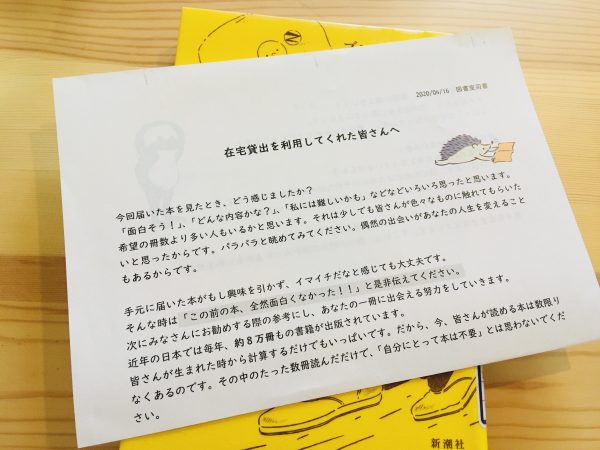 2020/04/16 図書室司書
在宅貸出を利用してくれた皆さんへ
今回届いた本を見たとき、どう感じましたか？
「面白そう！」、「どんな内容かな？」、「私には難しいかも」などなどいろいろ思ったと思います。
希望の冊数より多い人もいるかと思います。それは少しでも皆さんが色々なものに触れてもらいた
いと思ったからです。パラパラと眺めてみてください。偶然の出会いがあなたの人生を変えること
もあるからです。
手元に届いた本がもし興味を引かず、イマイチだなと感じても大丈夫です。
そんな時は「この前の本、全然面白くなかった！！」と是非伝えてください。
次にみなさんにお勧めする際の参考にし、あなたの一冊に出会える努力をしていきます。
近年の日本では毎年、約８万冊もの書籍が出版されています。
皆さんが生まれた時から計算するだけでもいっぱいです。だから、今、皆さんが読める本は数限り
なくあるのです。その中のたった数冊読んだだけで、「自分にとって本は不要」とは思わないでくだ
さい。
新潮社